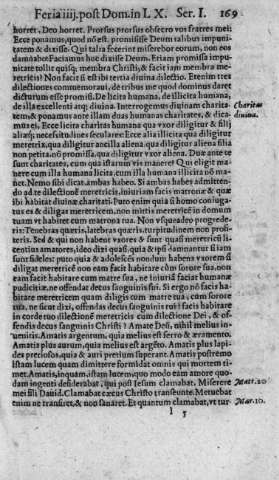 Feria iiij. post Dom. in L X. Ser. I. 169
horret, Deo horret. Prorsus prorsus absit hoc vos fratres mei
Ecce ponamus, quod nō est. promisisse Deum talibus impuni-
tatem & dixisse. Qui talia fecerint misereor eorum, non eos
damnabo. Faciamus hoc dixisse Deum. Etiam promissa impu-
nitate tollit quisq; membra Christi, & facit iam membra me-
retricis? Non facit si est ibi tertia diuina dilectio. Etenim tres
dilectiones commemoraui, de tribus me quod dominus daret
dicturum esse promisi. De licita humana, de illicita humana,
de illa excellenti atq; diuina. Interrogemus diuinam charita-
tem, & ponamus ante illam duas humanas charitates, & dica-
mus ei, Ecce licita charitas humana qua vxor diligitur & filij
aliasq; necessitudines seculares: Ecce alia illicita qua diligitur
meretrix, qua diligitur ancilla aliena. qua diligitur aliena filia
non petita. nō promissa, qua diligitur vxor aliena. Duæ ante te
sunt charitates, cum qua istarum vis manere? Qui eligit mane-
re cum illa humana licita. cum illa humana illicita nō ma-
net. Nemo sibi dicat. ambas habeo. Si ambas habes admitten-
do ad te dilectionē meretricis, iniuriam facis matronæ quæ
ibi habitat diuinæ charitati. Puto enim quia si homo coniuga-
tus es & diligas meretricem, non mittis meretricē in domum
tuam vt habitet cum matrona tua. Non vsqueadeo progrede-
ris: Tenebras quæris, latebras quæris, turpitudinem non profi-
teris. Sed & qui non habent vxores & sunt quasi meretricū li-
centius amatores,
sunt fideles: puto quia & adolescēs nondum habens vxorem si
diligat meretricē non eam facit habitare cūm sorore sua, non
eam facit habitare cum matre sua, ne iniuriā faciat humanæ
pudicitiæ, ne offendat decus sanguinis sui. Si ergo nō facis ha-
bitare meretricem quam diligis cum matre tua, cum sorore
tua, ne sicut dixi, offendas decus sanguinis tui: facis habitare
in corde tuo dilectionē meretricis cum dilectione Dei, & of-
fendis decus sanguinis Christi? Amate Deū, nihil melius in-
uenitis. Amatis argentum, quia melius est ferro & æramento.
Amatis plus aurum, quia melius est argēto. Amatis plus lapi-
des preciosos, quia & auri pretium superant. Amatis postremo
istam lucem quam dimittere formidat omnis qui mortem ti-
met. Amatis, inquam, istam lucem, quo modo eam amore quo-
dam ingenti desiderabat, qui post Iesum clamabat. Miserere
mei fili Dauid. Clamabat cæcus Christo transeunte. Metuebat
enim ne transiret, & non sanaret. Et quantum clamabat, vt tur-
l 5
Charitas
diuina.
Mat. 20
Mar. 10.